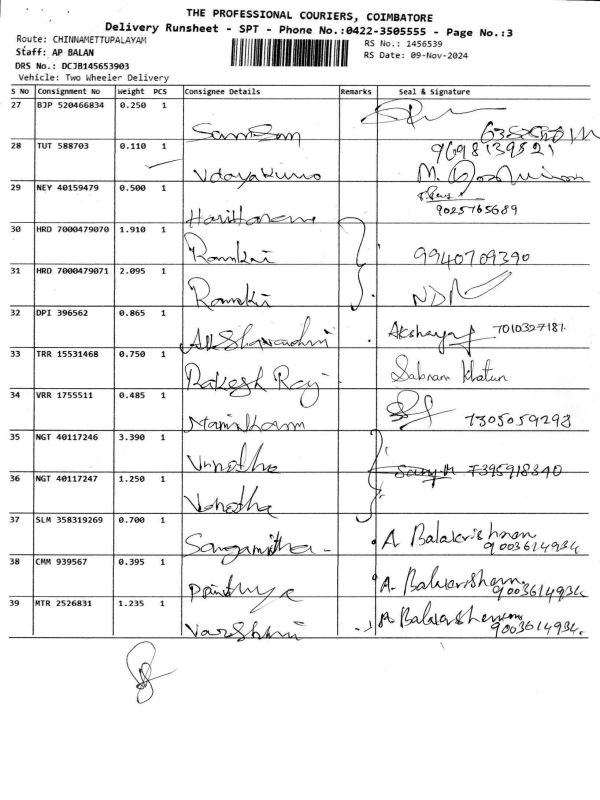 THE PROFESSIONAL COURIERS, COIMBATORE
Delivery Runsheet - SPT - Phone No.:0422-3505555 - Page No.:3
Route: CHINNAMETTUPALAYAM
RS No.: 1456539
Staff: AP BALAN
RS Date: 09-Nov-2024
DRS No.: DCJB145653903
Vehicle: Two Wheeler Delivery
S No Consignment No Weight PCS Consignee Details Remarks Seal & Signature
27 BJP 520466834 0.250 1
28 TUT 588703 0.110 1 9698139521
29 NEY 40159479 0.500 1 9025765689
30 HRD 7000479070 1.910 1 Ramkai 9940709390
31 HRD 7000479071 2.095 1 NDR
32 DPI 396562 0.865 1 Akshaya 7010327181
33 TRR 15531468 0.750 1 Rakesh Raj Sabnam khatun
34 VRR 1755511 0.485 1 7305059293
35 NGT 40117246 3.390 1 7395918340
36 NGT 40117247 1.250 1
37 SLM 358319269 0.700 1 Sangamithra A Balakrishnan
9003614934
38 CMM 939567 0.395 1 A. Balakrishnan
9003614934
39 MTR 2526831 1.235 1 Varshini A Balakrishnan
9003614934